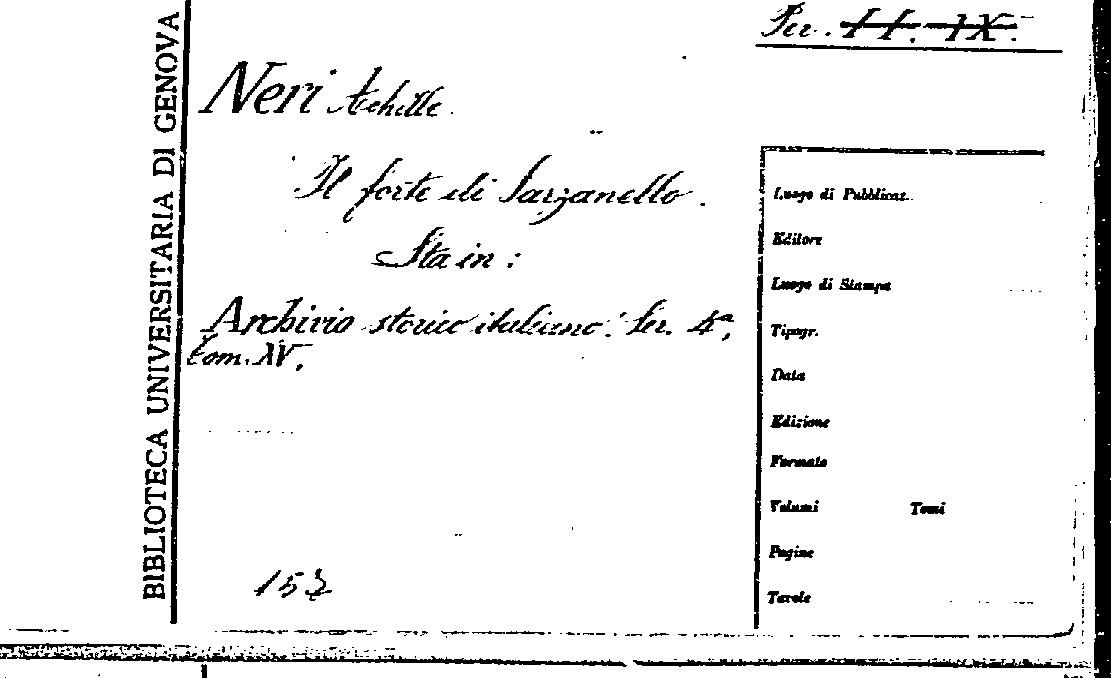 BIBLIOTECA UNIVERSITARIA DI GENOVA
Per. II. IX.
Neri Achille.
Il forte di Sarzanello.
Sta in:
Archivio storico italiano. Ser. 4ª,
tom. XV.
Luogo di Pubblicaz.
Editore
Luogo di Stampa
Tipogr.
Data
Edizione
Formato
Volumi Tomi
Pagine
Tavole